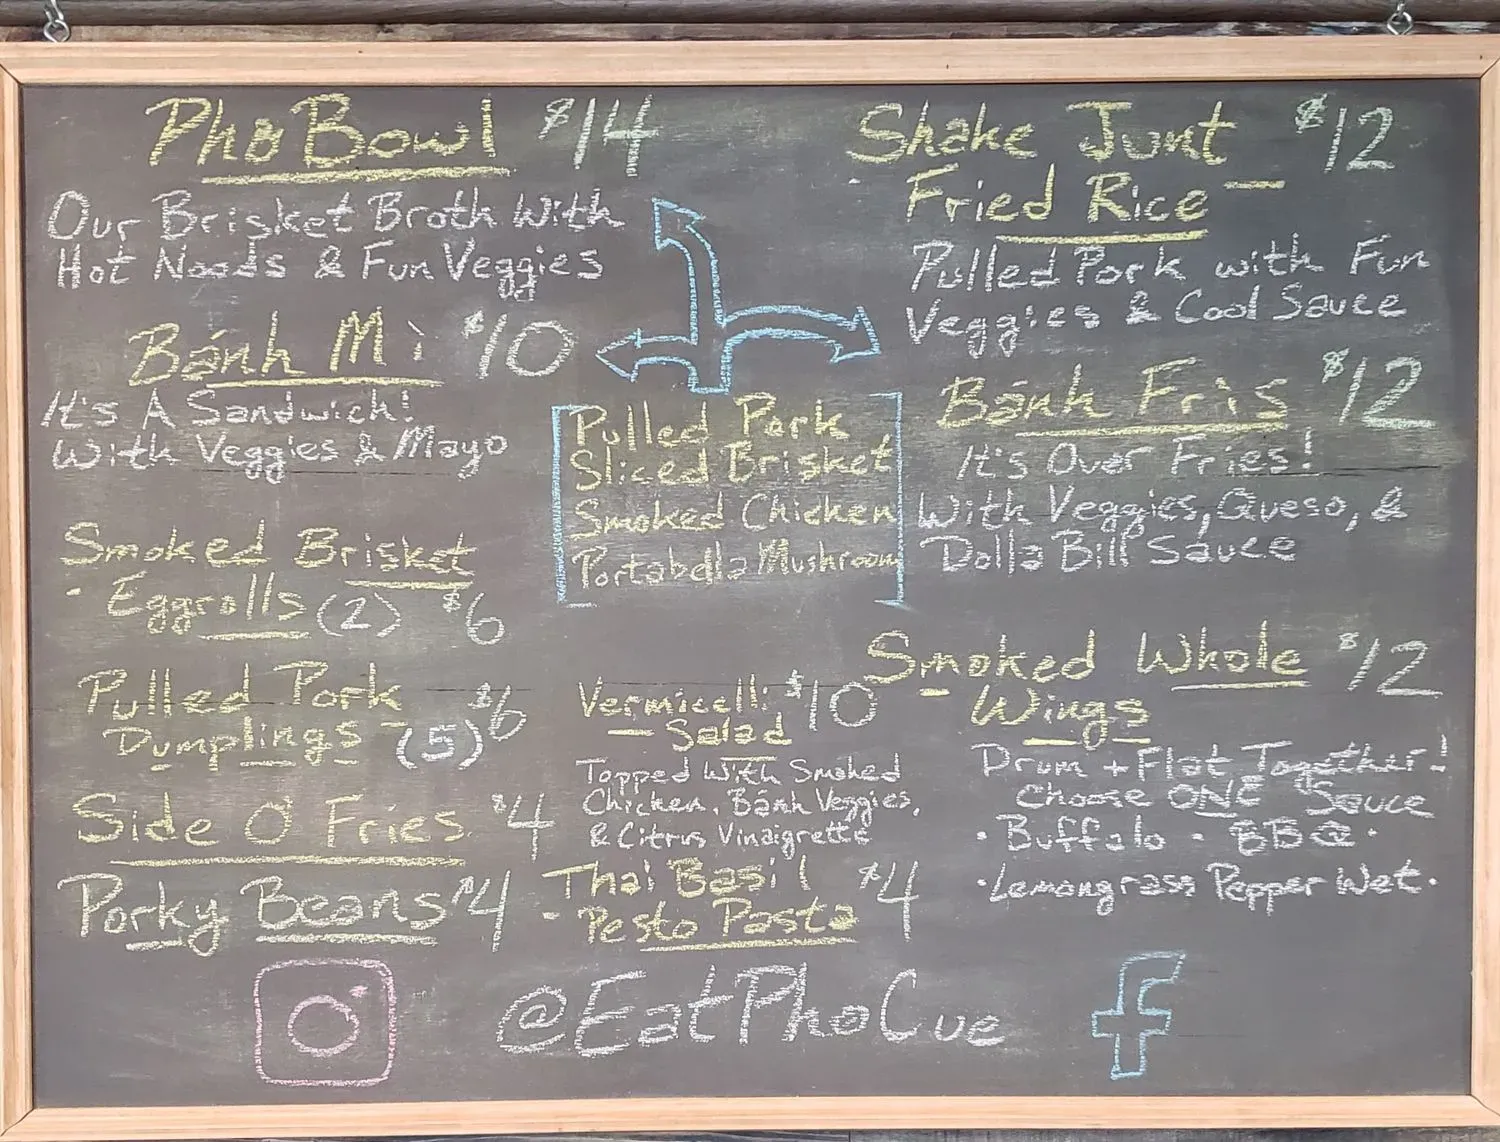 Pho Bowl $14
Our Brisket Broth With
Hot Noods & Fun Veggies
Bánh Mì $10
It's A Sandwich!
With Veggies & Mayo
Smoked Brisket
- Eggrolls (2) $6
Pulled Pork
Dumplings - (5) $6
Side O' Fries $4
Porky Beans $4
Pulled Pork
Sliced Brisket
Smoked Chicken
Portabella Mushroom
Vermicelli $10
Salad
Topped With Smoked
Chicken, Bánh Veggies,
& Citrus Vinaigrette
Thai Basil $4
- Pesto Pasta
Shake Junt $12
Fried Rice
Pulled Pork with Fun
Veggies & Cool Sauce
Bánh Fris $12
It's Over Fries!
With Veggies, Queso, &
Dolla Bill Sauce
Smoked Whole $12
- Wings
Drum + Flat Together!
Choose ONE Sauce
• Buffalo • BBQ •
• Lemongrass Pepper Wet •
@EatPhoCue
f